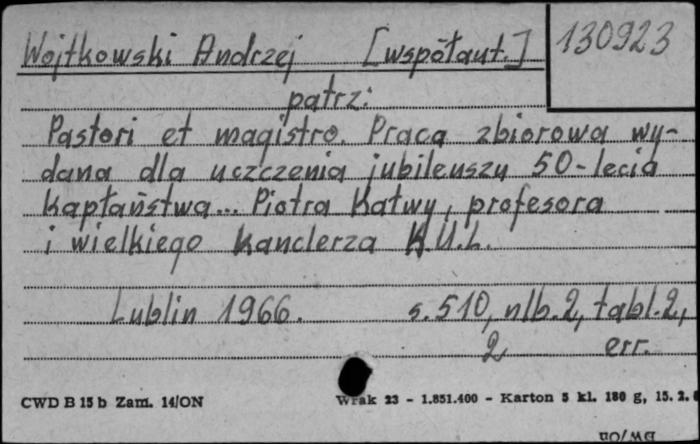 Wojtkowski Andrzej [współaut.] 130923
patrz:
Pastori et magistro. Praca zbiorowa wy-
dana dla uczczenia jubileuszu 50-lecia
kapłaństwa... Piotra Kałwy, profesora
i wielkiego kanclerza K.U.L.
Lublin 1966. s. 510, nlb. 2, tabl. 2,
2 err.
CWD B 15 b Zam. 14/ON Wrak 23 - 1.851.400 - Karton 5 kl. 180 g, 15. 2.